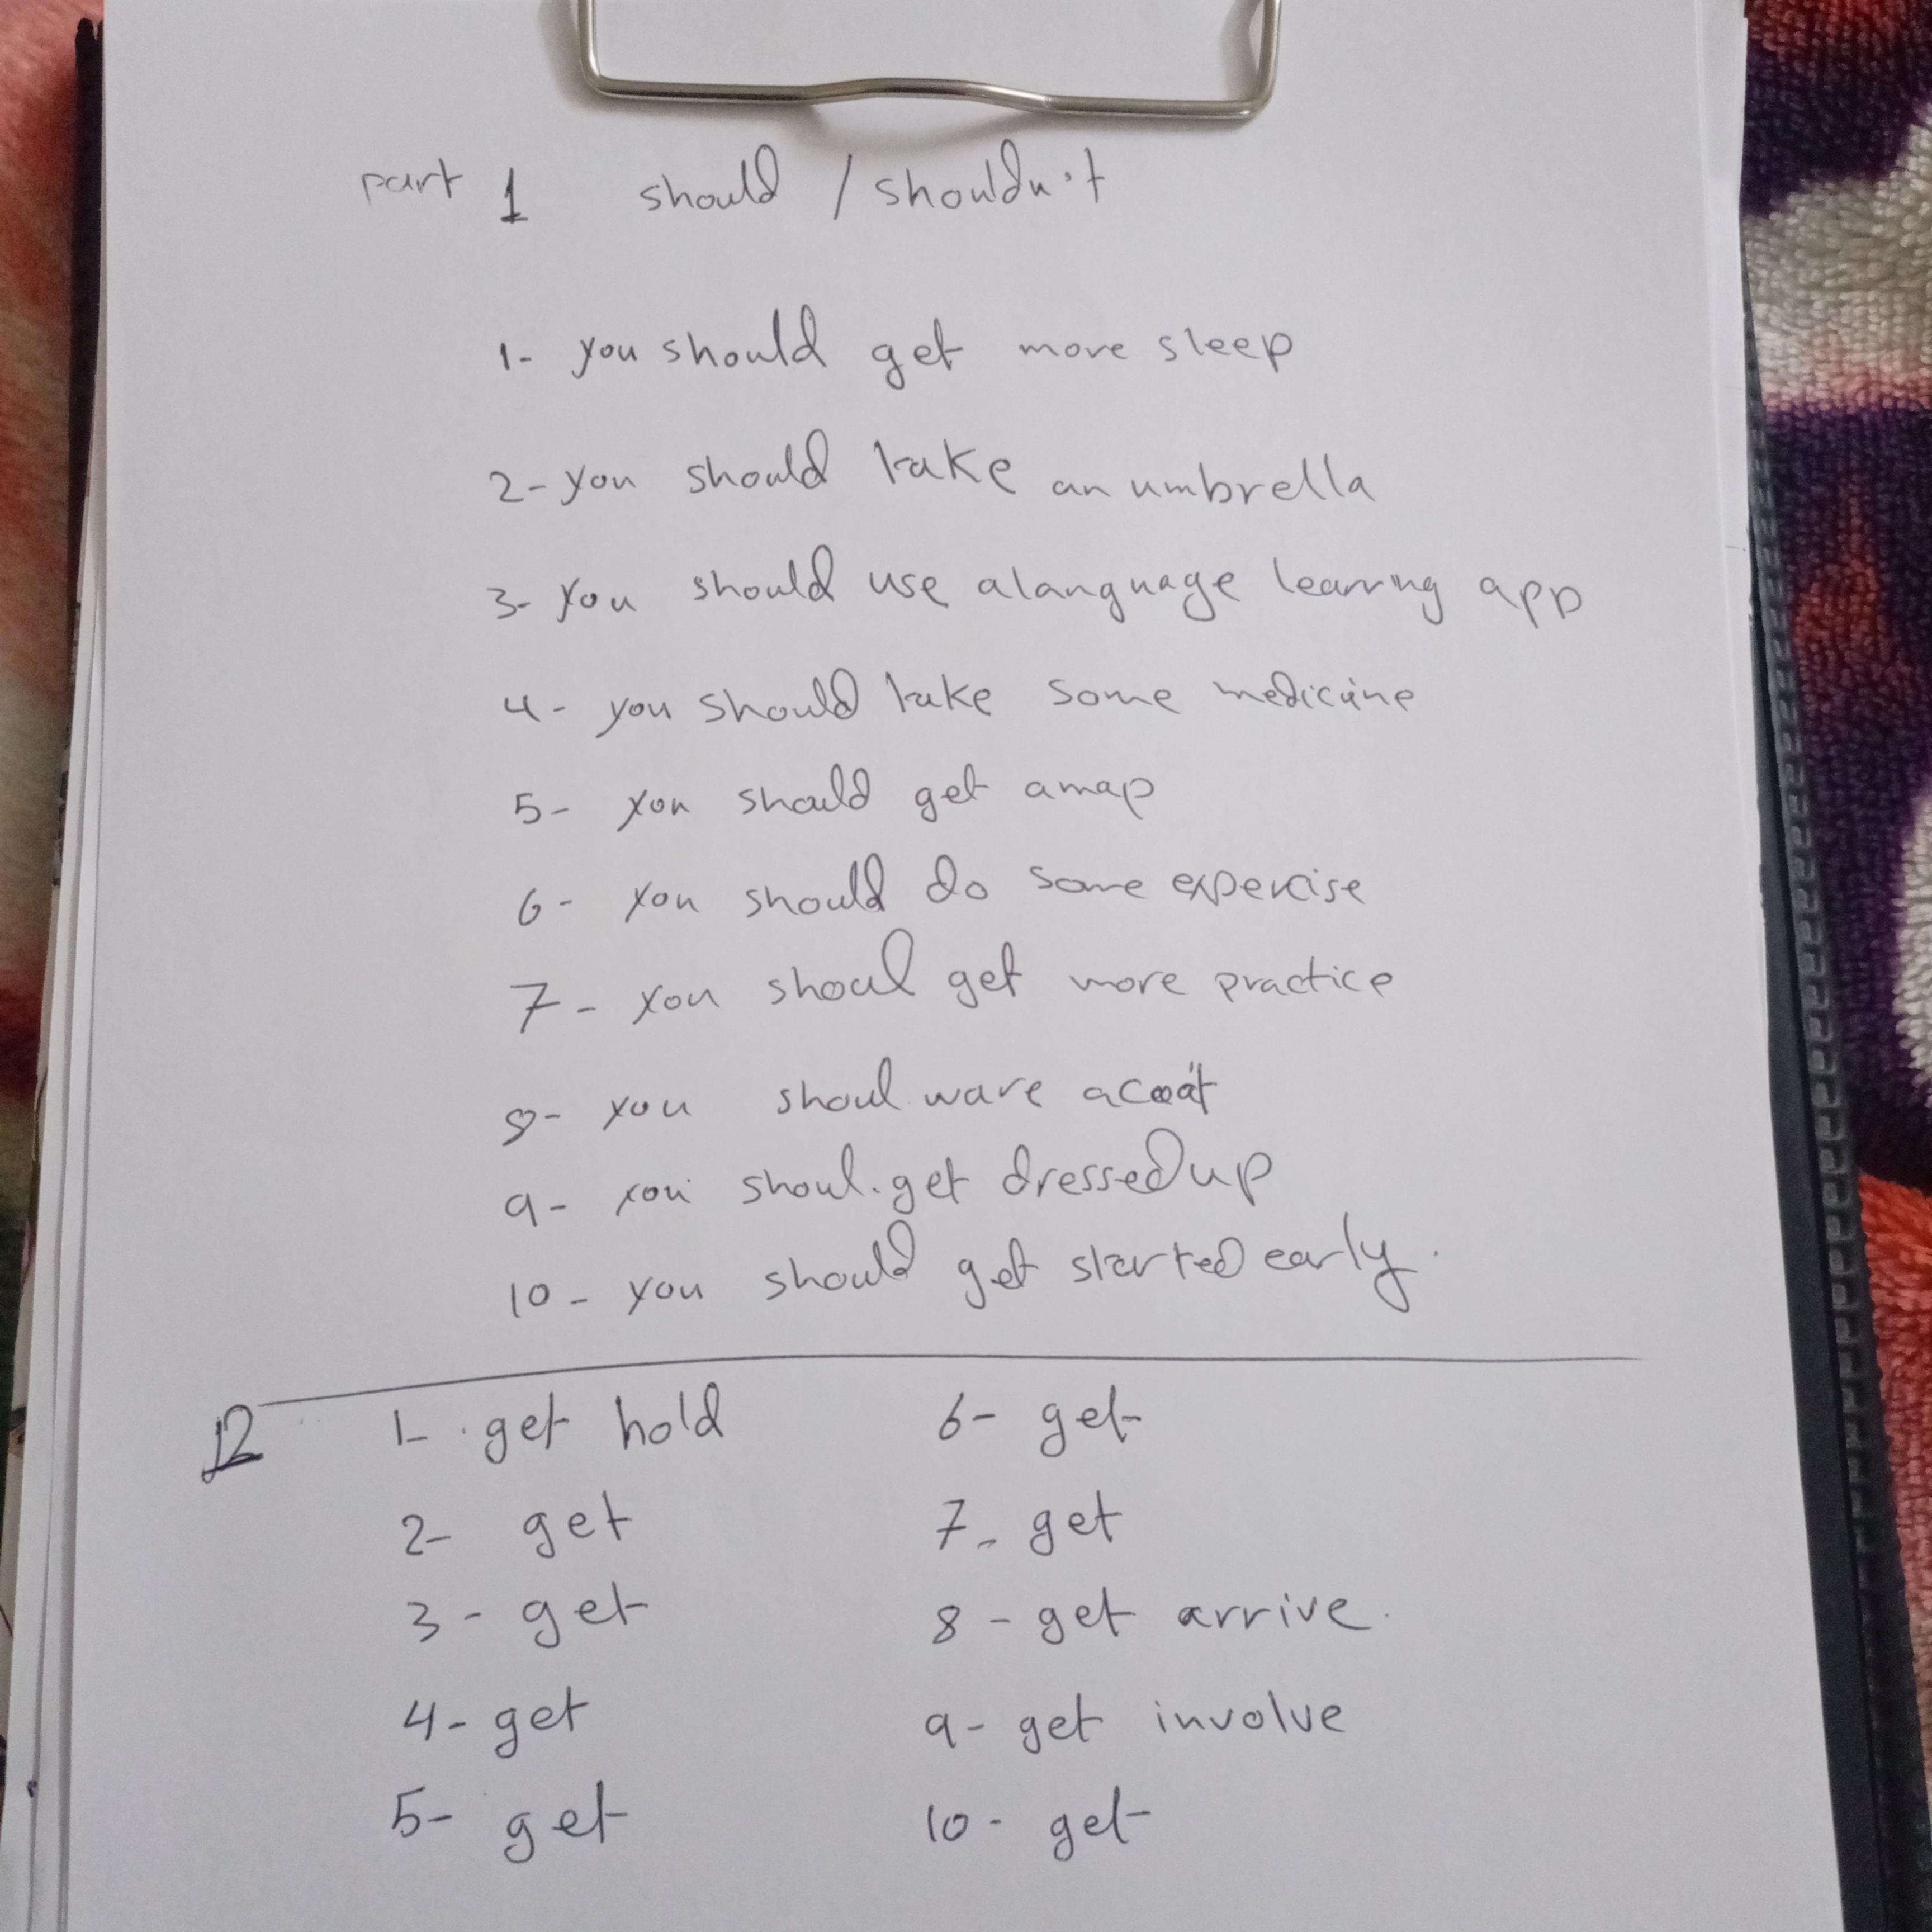 part 1 should / shouldn't
1- you should get more sleep
2- you should take an umbrella
3- you should use a language learnng app
4- you should take some medicine
5- you should get a map
6- you should do some expercise
7- you shoul get more practice
8- you shoul ware a coat
9- you shoul. get dressed up
10- you should get started early.
2
1- get hold
2- get
3- get
4- get
5- get
6- get
7- get
8- get arrive.
9- get involve
10- get